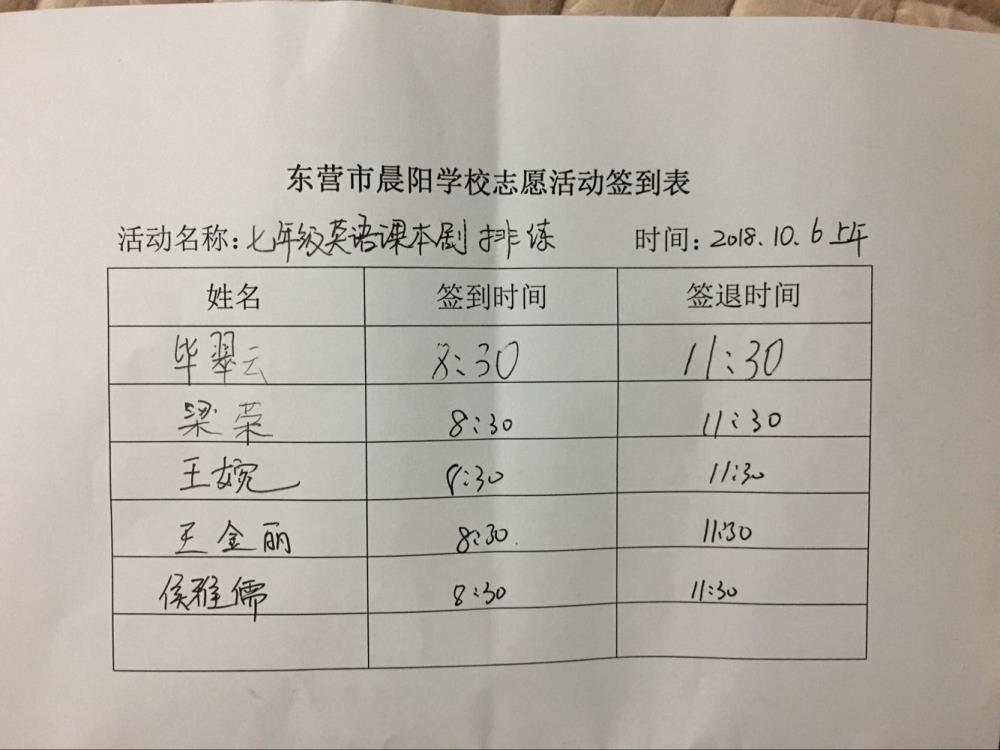 东营市晨阳学校志愿活动签到表
活动名称:七年级英语课本剧排练 时间:2018.10.6上午
姓名 签到时间 签退时间
毕翠云 8:30 11:30
梁荣 8:30 11:30
王婉 8:30 11:30
王金丽 8:30 11:30
侯雅儒 8:30 11:30